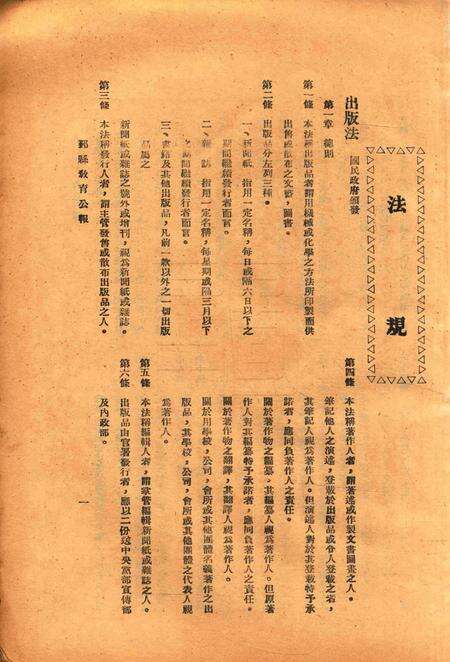 法規
出版法
國民政府頒發
第一章 總則
第一條 本法稱出版品者謂用機械或化學之方法所印製而供
出售或散布之文書，圖畫。
第二條 出版品分左列三種。
一、新聞紙 指用一定名稱，每日或隔六日以下之
期間繼續發行者而言。
二、雜誌 指用一定名稱，每星期或隔三月以下
之期間繼續發行者而言。
三、書籍及其他出版品，凡前二款以外之一切出版
品屬之
新聞紙或雜誌之號外或增刊，視為新聞紙或雜誌。
第三條 本法稱發行人者，謂主管發售或散布出版品之人。
第四條 本法稱著作人者，謂著述或作製文書圖畫之人。
筆記他人之演述，登載於出版品或令人登載之者，
其筆記人視為著作人。但演述人對於其登載特予承
諾者，應同負著作人之責任。
關於著作物之編纂，其編纂人視為著作人。但原著
作人對其編纂特予承諾者，應同負著作人之責任。
關於著作物之翻譯，其翻譯人視為著作人。
關於用學校，公司，會所或其他團體名義著作之出
版品，其學校，公司，會所或其他團體之代表人視
為著作人。
第五條 本法稱編輯人者，謂掌管編輯新聞紙或雜誌之人。
第六條 出版品由官署發行者，應以二份送中央黨部宣傳部
及內政部。
鄞縣教育公報
一